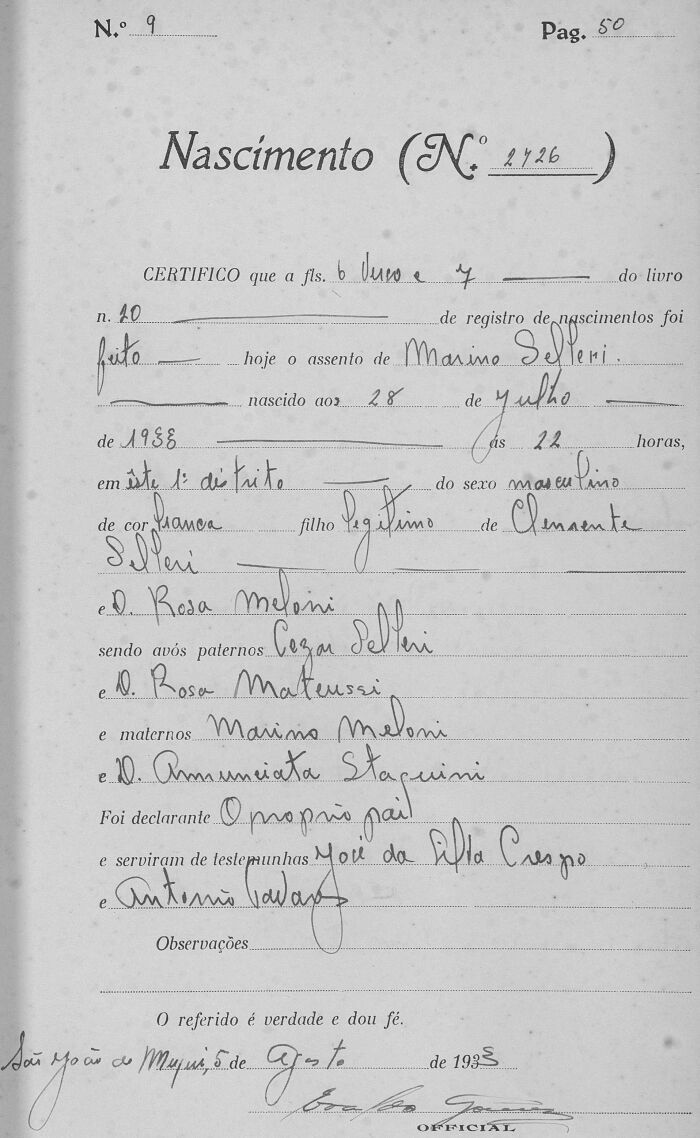 N.º 9 Pag. 50
Nascimento (N.º 2726)
CERTIFICO que a fls. 6 verso e 7 do livro
n. 20 de registro de nascimentos foi
feito hoje o assento de Marino Selleri.
nascido aos 28 de Julho
de 1933 ás 22 horas,
em êste 1º distrito do sexo masculino
de cor branca filho legitimo de Clemente
Selleri
e D. Rosa Meloni
sendo avós paternos Cezar Selleri
e D. Rosa Mateussi
e maternos Marino Meloni
e D. Annunciata Staguini
Foi declarante O proprio pai
e serviram de testemunhas José da Silva Crespo
e Antonio Tavares
Observações
O referido é verdade e dou fé.
São João do Muqui, 5 de Agosto de 1933
OFFICIAL